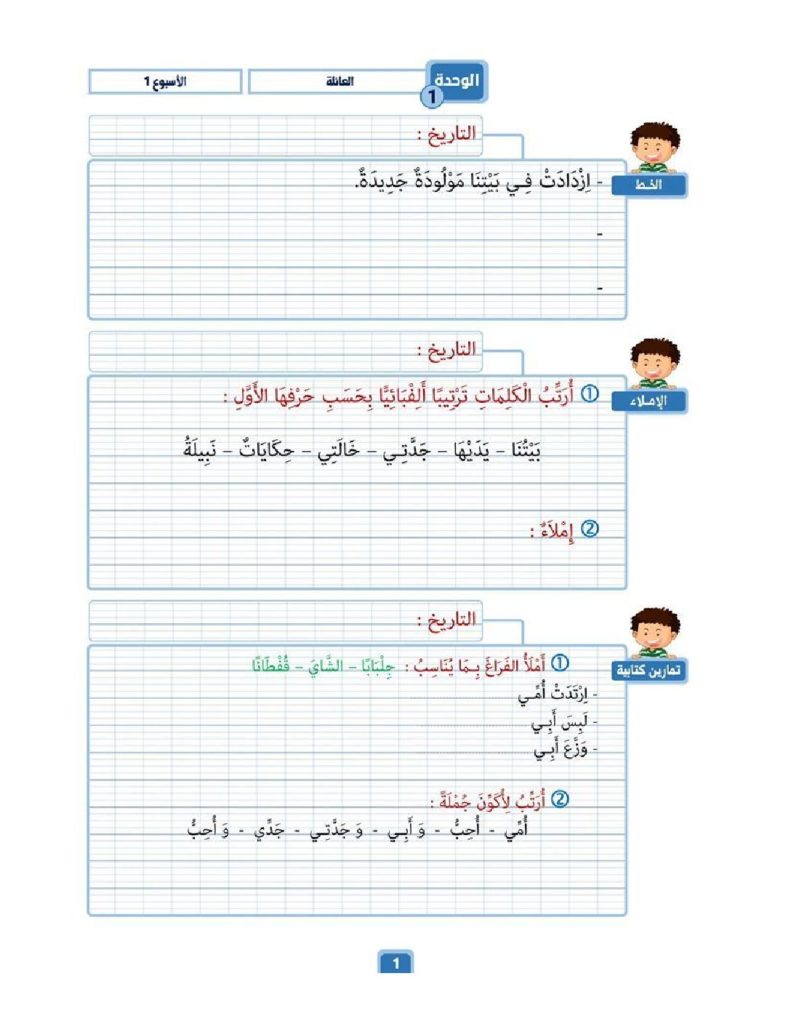 الوحدة 1 العائلة الأسبوع 1
التاريخ :
الخط
- اِزْدَادَتْ فِي بَيْتِنَا مَوْلُودَةٌ جَدِيدَةٌ.
-
-
التاريخ :
الإملاء
① أُرَتِّبُ الْكَلِمَاتِ تَرْتِيبًا أَلِفْبَائِيًّا بِحَسَبِ حَرْفِهَا الأَوَّلِ :
بَيْتُنَا – يَدَيْهَا – جَدَّتِي – خَالَتِي – حِكَايَاتٌ – نَبِيلَةُ
② إِمْلاَءٌ :
التاريخ :
تمارين كتابية
① أَمْلَأُ الفَرَاغَ بِمَا يُنَاسِبُ : جِلْبَابًا – الشَّايَ – قُفْطَانًا
- اِرْتَدَتْ أُمِّي
- لَبِسَ أَبِي
- وَزَّعَ أَبِي
② أُرَتِّبُ لِأُكَوِّنَ جُمْلَةً :
أُمِّي - أُحِبُّ - وَ أَبِي - وَ جَدَّتِي - جَدِّي - وَ أُحِبُّ
1